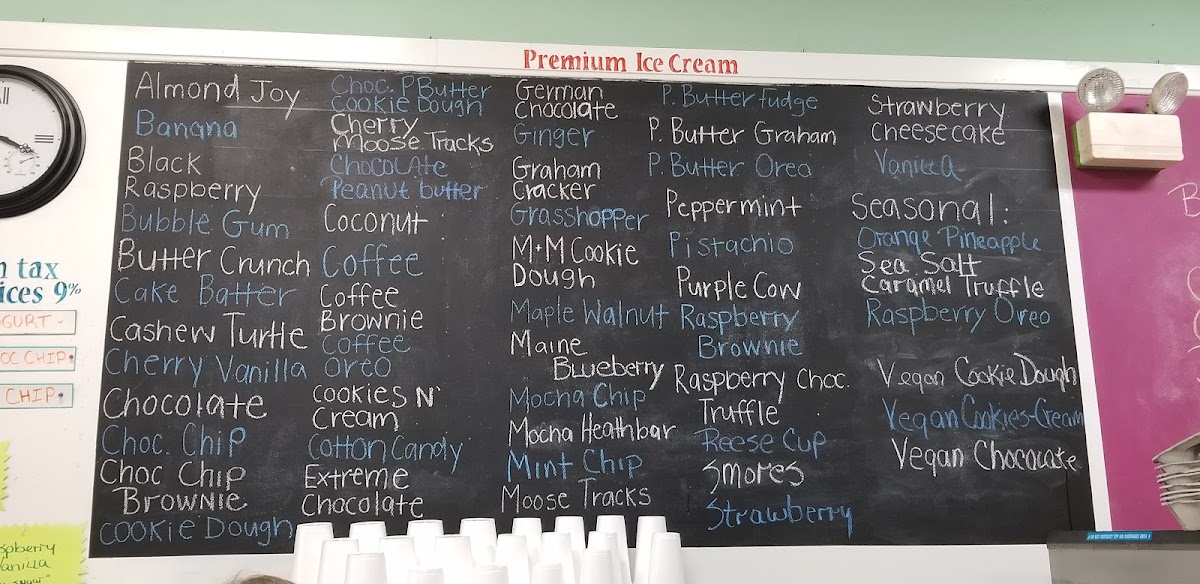 Premium Ice Cream
Almond Joy
Banana
Black
Raspberry
Bubble Gum
Butter Crunch
Cake Batter
Cashew Turtle
Cherry Vanilla
Chocolate
Choc. Chip
Choc Chip
Brownie
Cookie Dough
Choc. P Butter
Cookie Dough
Cherry
Moose Tracks
Chocolate
Peanut butter
Coconut
Coffee
Coffee
Brownie
Coffee
Oreo
Cookies N'
Cream
Cotton Candy
Extreme
Chocolate
German
Chocolate
Ginger
Graham
Cracker
Grasshopper
M+M Cookie
Dough
Maple Walnut
Maine
Blueberry
Mocha Chip
Mocha Heathbar
Mint Chip
Moose Tracks
P. Butter Fudge
P. Butter Graham
P. Butter Oreo
Peppermint
Pistachio
Purple Cow
Raspberry
Brownie
Raspberry Choc.
Truffle
Reese Cup
Smores
Strawberry
Strawberry
Cheesecake
Vanilla
Seasonal:
Orange Pineapple
Sea Salt
Caramel Truffle
Raspberry Oreo
Vegan Cookie Dough
Vegan Cookies-Cream
Vegan Chococate
tax
ices 9%
OGURT -
OC CHIP.
CHIP.
spberry
anilla